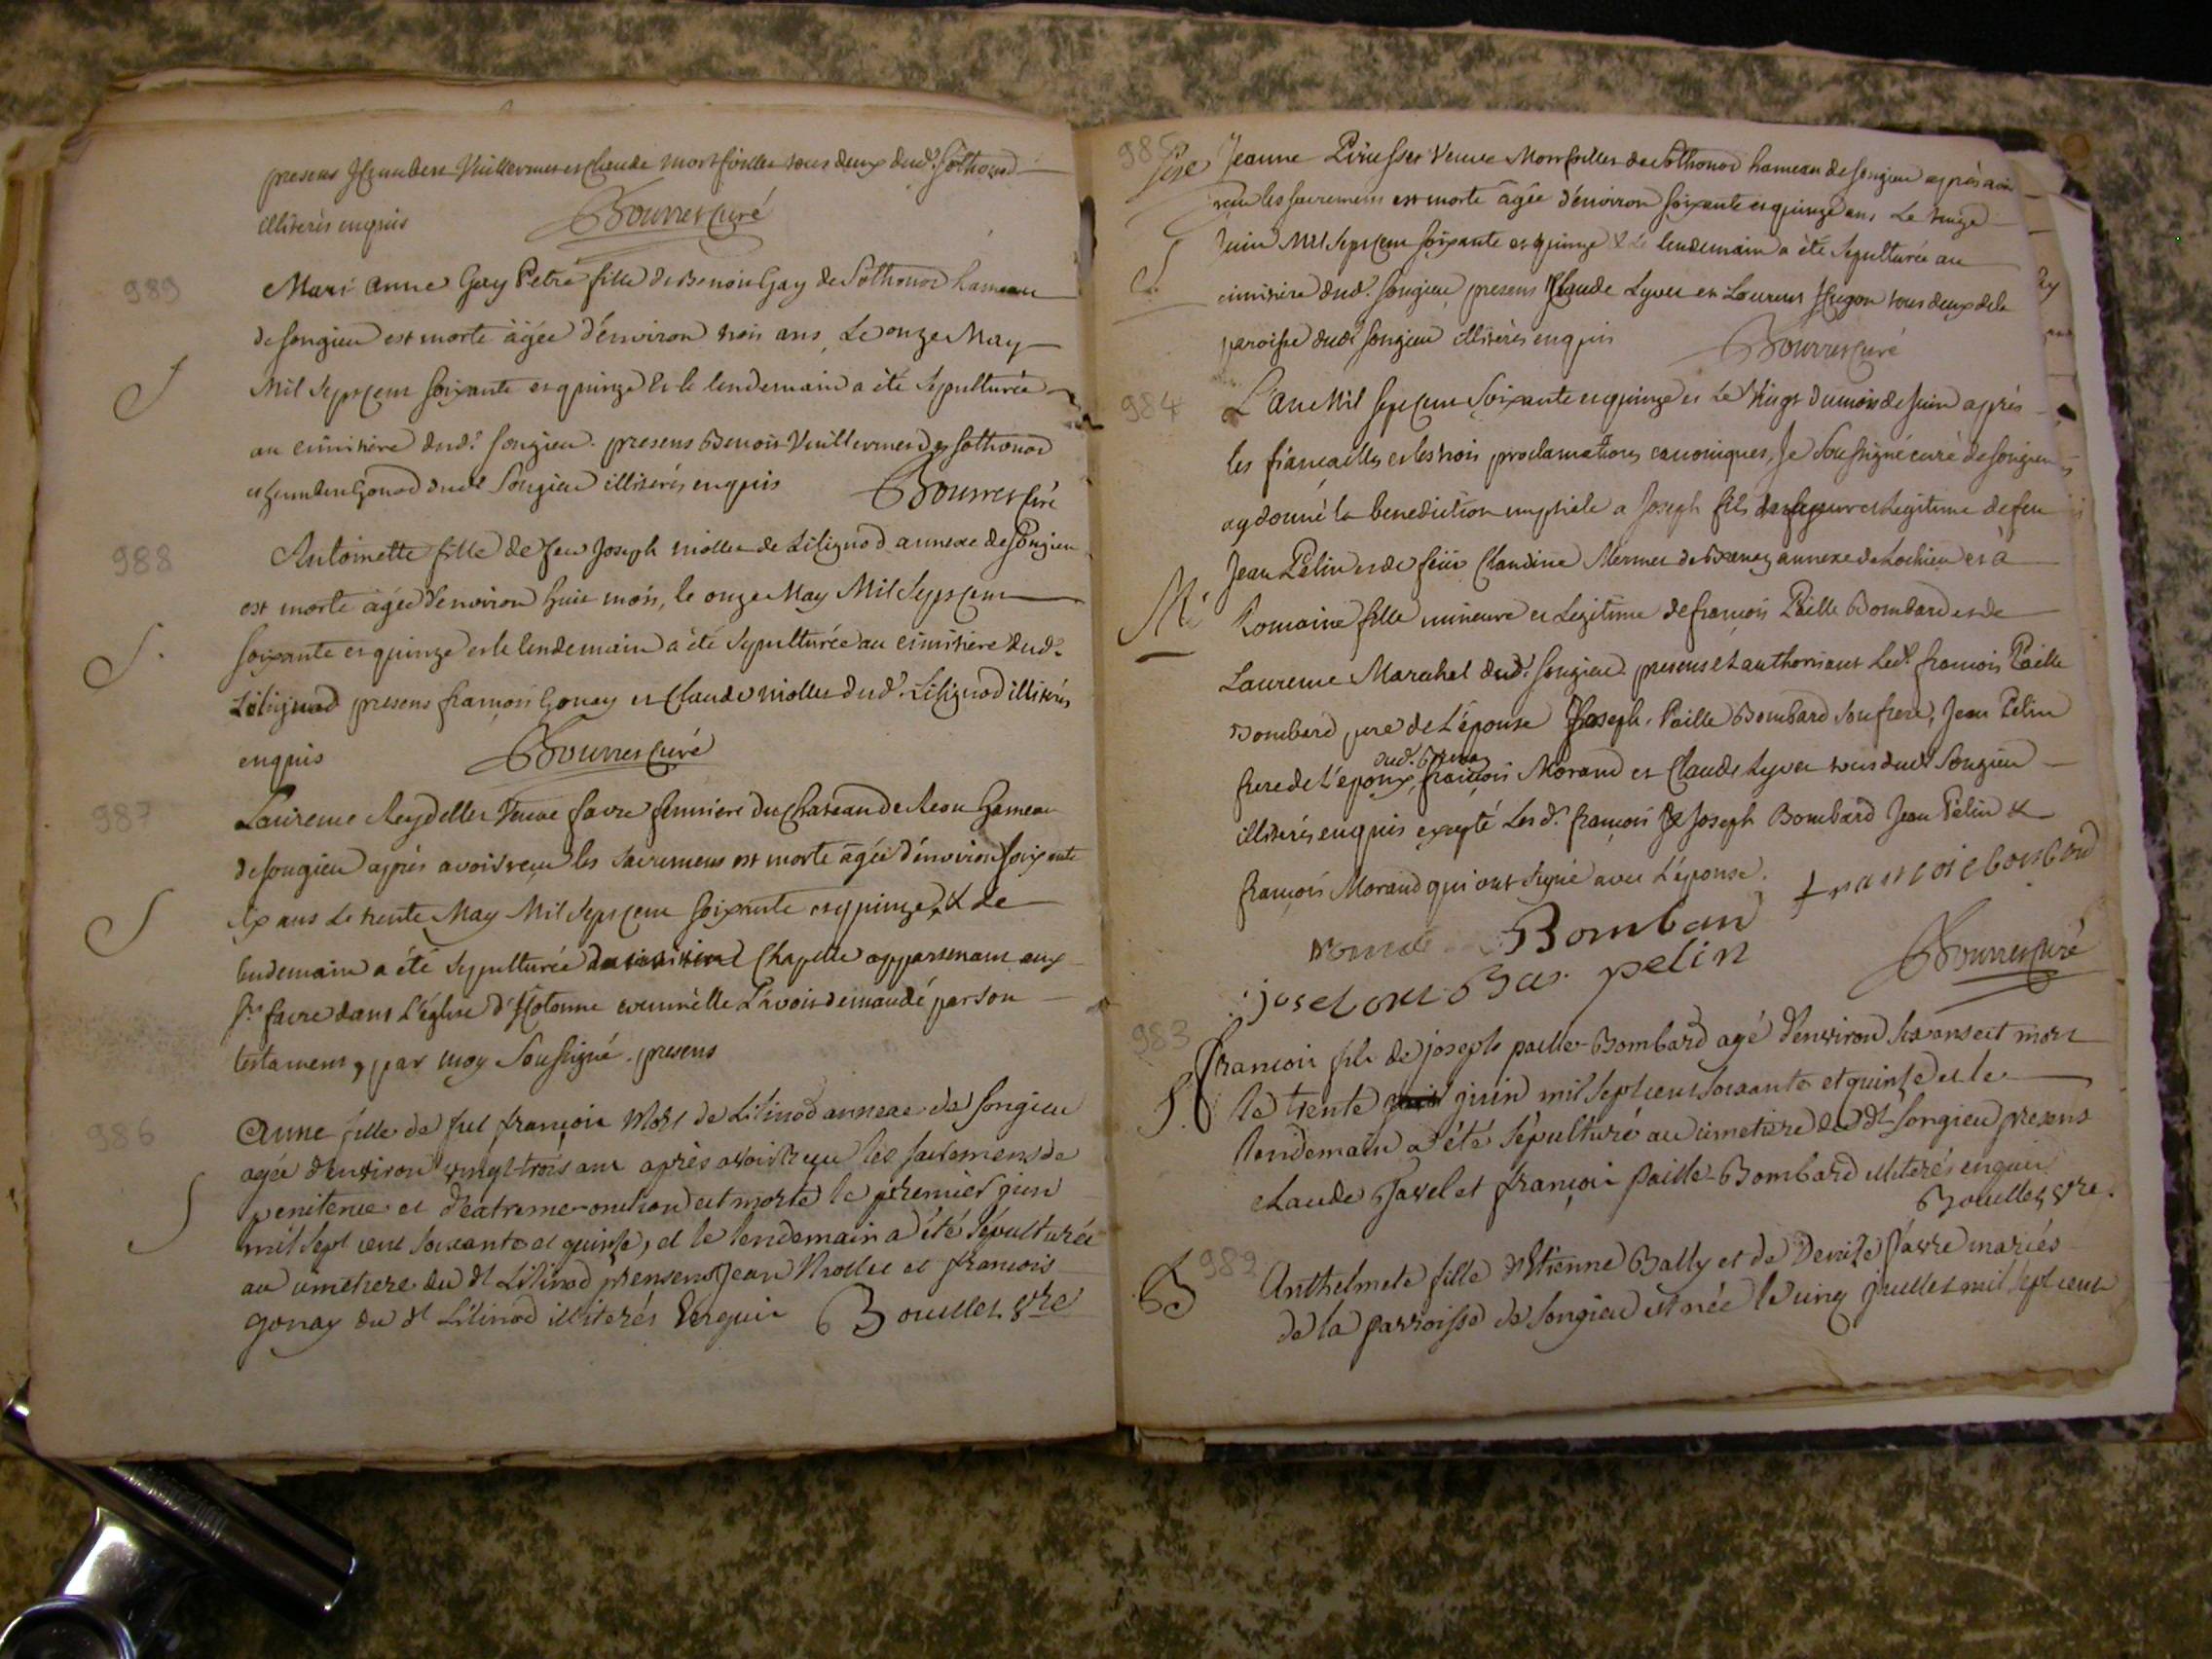 presens Humbert Vuillermet et Claude Montfoillet tous deux dud.t Sothonod
illiterés enquis Bourret Curé
989
Mari anne Gay Petré fille de Benoit Gay de Sothonod hameau
de songieu est morte âgée d'environ trois ans, Le onze May
S
Mil Sept Cent soixante et quinze et le lendemain a été Sepulturée
au cimitière dud.t songieu. presens Benoit Vuillermet de sothonod
et humbert Gonod dud.t Songieu illiterés enquis Bourret Curé
988
Antoinette fille de feu Joseph miollet de Lilignod annexe de Songieu
est morte âgée d'environ huit mois, le onze May Mil Sept Cent
S.
soixante et quinze et le lendemain a été Sepulturée au cimitiere dud.t
Lilignod presens françois Gonay et Claude miollet dud.t Lilignod illiterés
enquis Bourret Curé
987
Laurence Reydellet Veuve favre fermiere du Chateau de Reou hameau
de songieu après avoir reçu les sacremens est morte âgée d'environ soixante
S
dix ans Le trente May Mil Sept Cent soixante et quinze, & Le
lendemain a été Sepulturée Chapelle appartenant aux
Srs favre dans L'église d'Hotonne comme elle L'avoit demandé par son
testament, par moy Soussigné. presens
986
Anne fille de feu françois Mollet de Lilinod annexe de Songieu
agée d'environ vingt-trois ans après avoir reçu les sacremens de
S
penitence et d'extreme-onction est morte le premier juin
mil sept cent soixante et quinze, et le lendemain a été sépulturée
au cimetiere du dt Lilinod presens Jean Mollet et françois
gonay du dt Lilinod illiterés enquis Bouillet vre
985
Jeanne Pirusset Veuve Montfoillet de Sothonod hameau de songieu après avoir
reçu les sacremens est morte âgée d'environ soixante et quinze ans Le treize
S
Juin Mil Sept Cent soixante et quinze & Le lendemain a été Sepulturée au
cimitiere dud.t songieu presens Claude Lyvet et Laurent Hugon tous deux de la
paroisse dud.t songieu illiterés enquis Bourret Curé
984
L'an Mil Sept Cent Soixante et quinze et Le Vingt du mois de Juin après
les fiançailles et les trois proclamations canoniques, Je Soussigné curé de songieu
ay donné la benediction nuptiale a Joseph fils et Legitime de feu
Jean Pelin et de feüe Claudine Mermet de Brenaz annexe de Lochieu et à
M
Romaine fille mineure et Legitime de françois Paille Bombard et de
Laurence Marechal dud.t songieu. presens et authorisant Led.t françois Paille
Bombard pere de L'épouse Joseph Paille Bombard son frere, Jean Pelin
dud.t Brenaz
frere de L'époux, françois Morand et Claude Lyvet tous dud.t Songieu
illiterés enquis excepté Lesd.ts françois & Joseph Bombard Jean Pelin &
françois Morand qui ont signé avec L'épouse.
Bomban francois bonbard
pelin Bourret Curé
983
françois fils de joseph paille-Bombard agé d'environ six ans est mort
S.
le trente juin mil sept cent soixante et quinse et le
lendemain a été sépulturé au cimetiere du dt Songieu presens
claude Tavel et françois paille-Bombard illiterés enquis
Bouillet vre.
982
B
Anthelmete fille d'Etienne Bally et de Denise favre mariés
de la parroisse de Songieu est née le cinq juillet mil sept cent